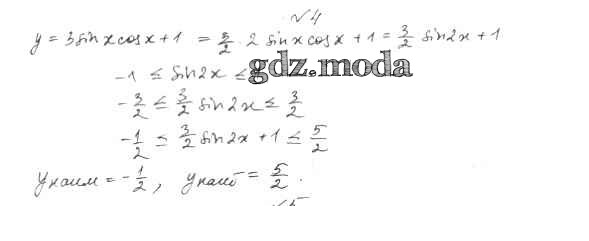 √4
y = 3sin x cos x + 1 = 3/2 · 2 sin x cos x + 1 = 3/2 sin2x + 1
-1 ≤ sin2x ≤
gdz.moda
-3/2 ≤ 3/2 sin2x ≤ 3/2
-1/2 ≤ 3/2 sin2x + 1 ≤ 5/2
yнаим = -1/2, yнаиб = 5/2.